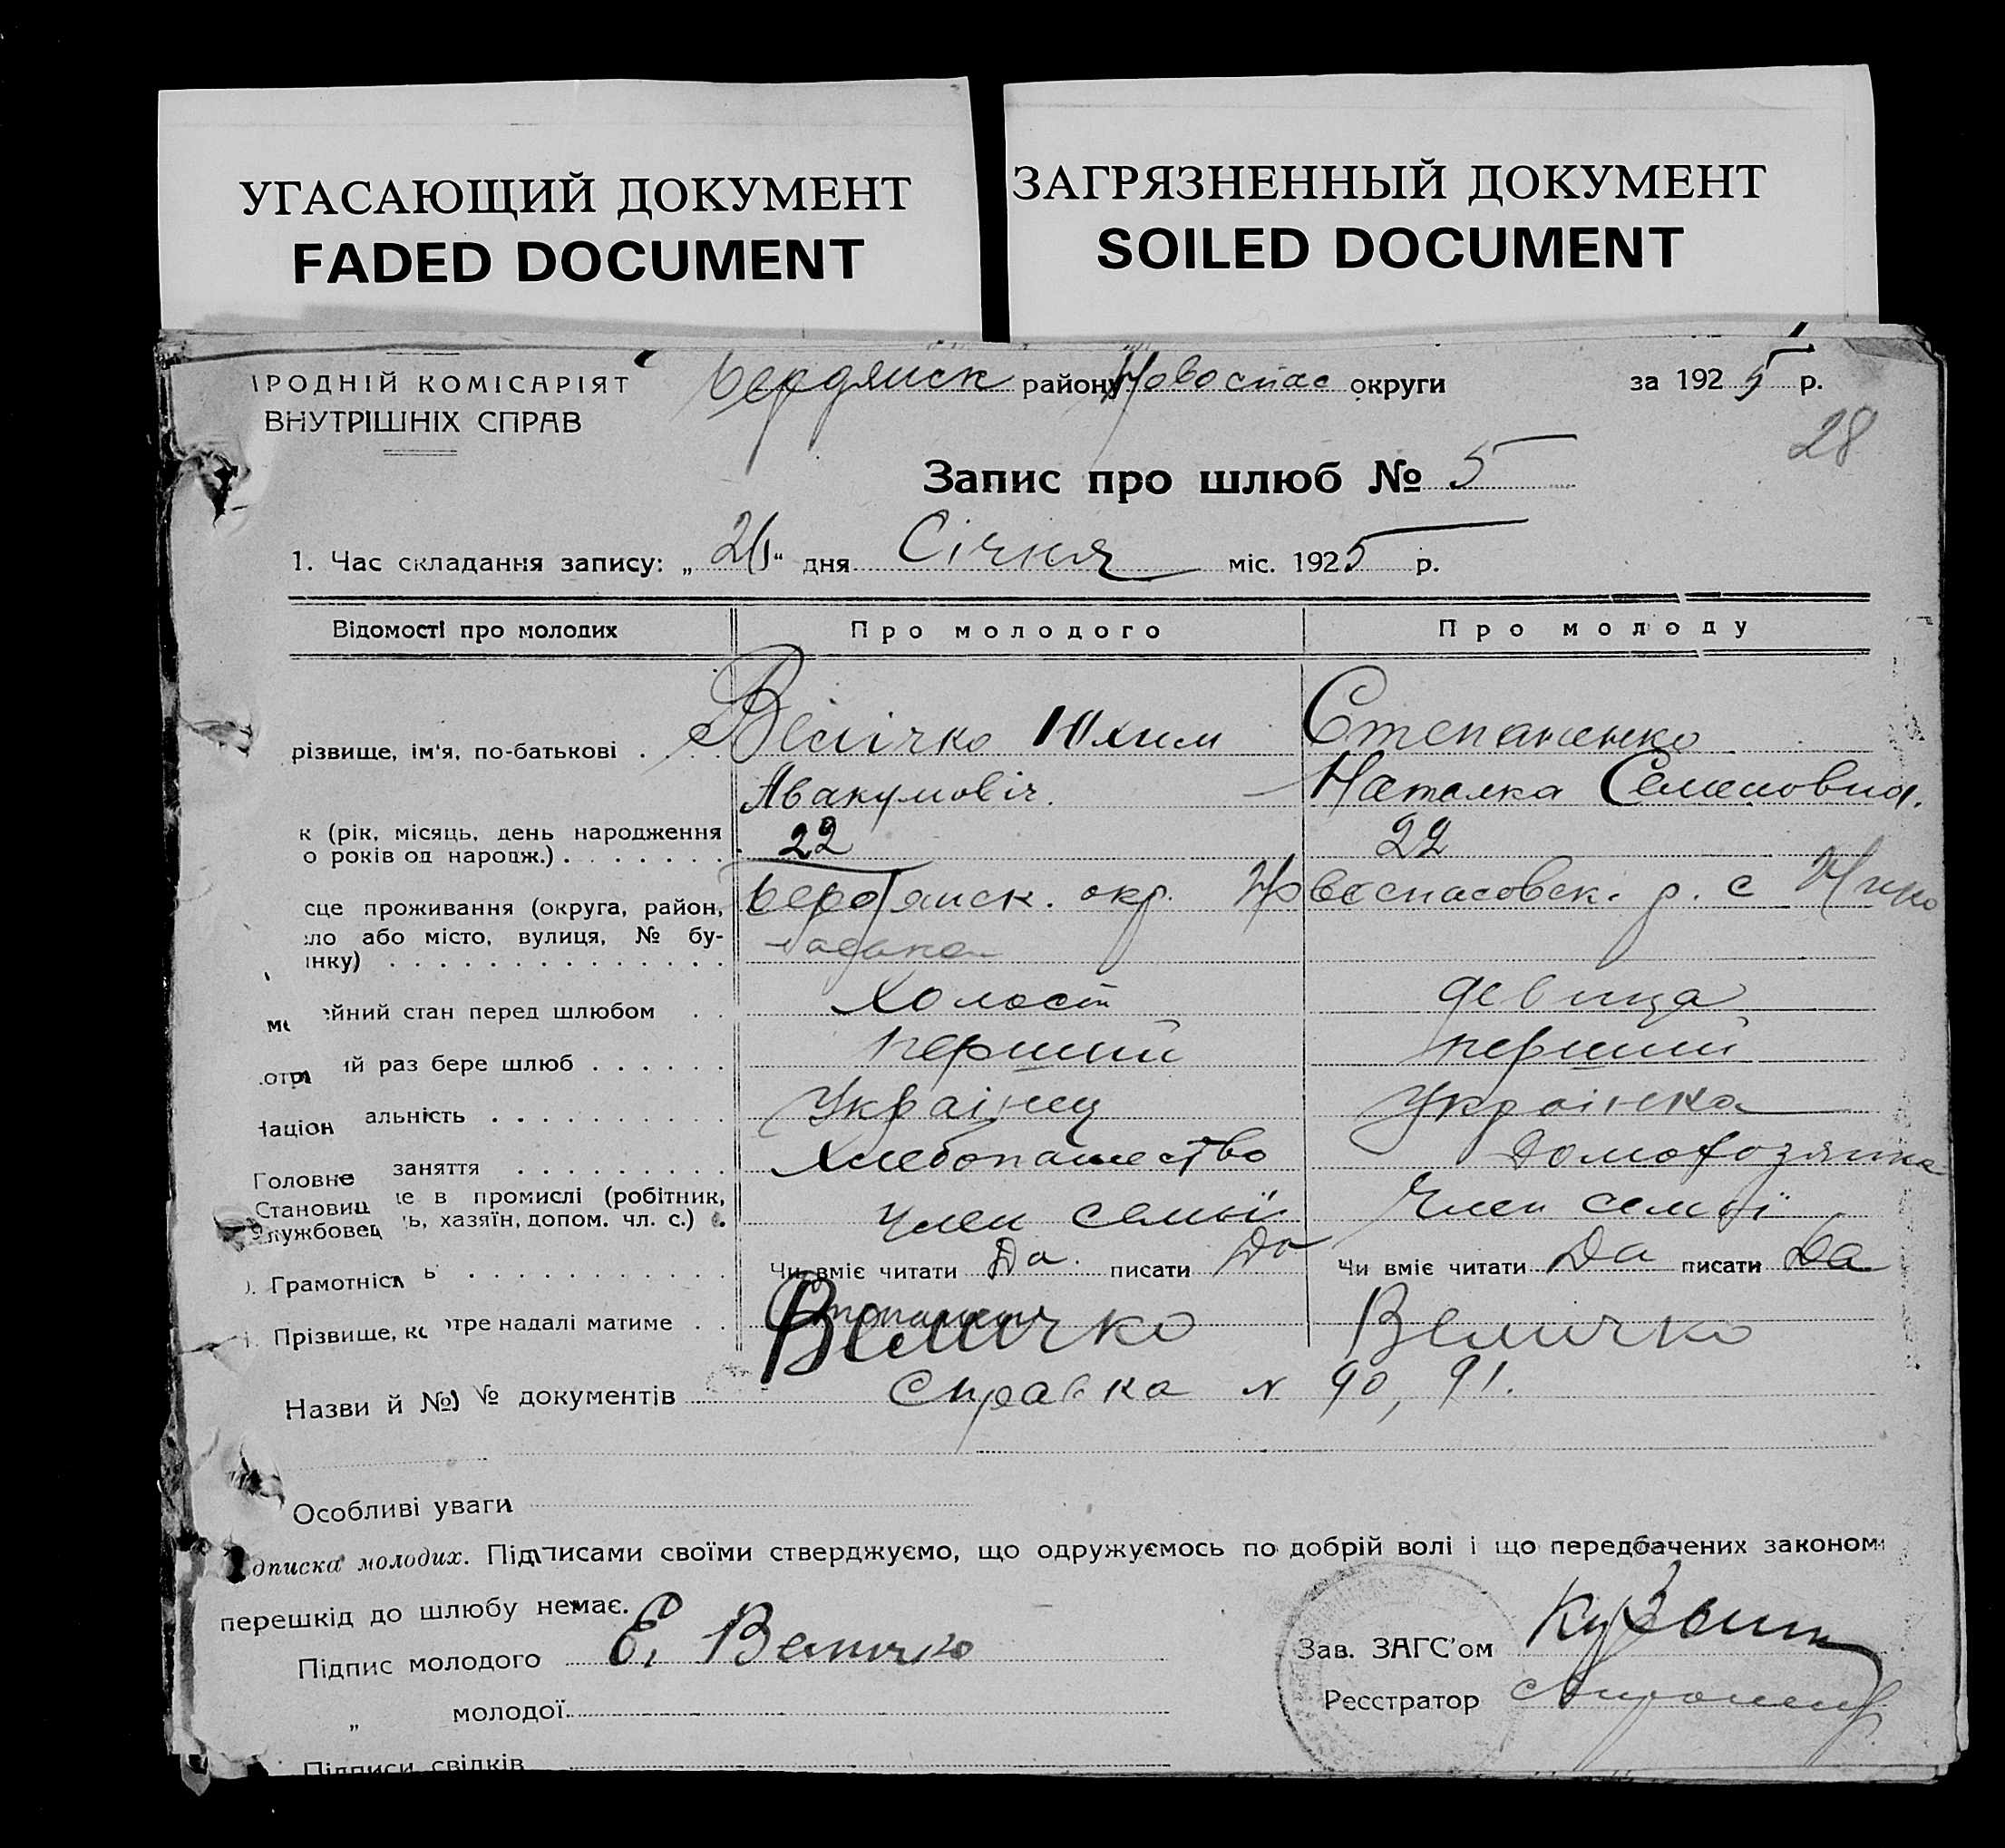 УГАСАЮЩИЙ ДОКУМЕНТ
FADED DOCUMENT
ЗАГРЯЗНЕННЫЙ ДОКУМЕНТ
SOILED DOCUMENT
РОДНІЙ КОМІСАРІЯТ
ВНУТРІШНІХ СПРАВ
Бердянск району Новоспас округи за 1925 р.
28
Запис про шлюб № 5
1. Час складання запису: „26“ дня Січня міс. 1925 р.
Відомості про молодих Про молодого Про молоду
різвище, ім'я, по-батькові . . . . Велічко Юхим Степаненко
Авакумовіч. Наталка Семеновна.
к (рік, місяць, день народження
о років од народж.) . . . . . . . 22 22
сце проживання (округа, район, Бердянск. окр. Новоспасовск. р. с Нико
ло або місто, вулиця, № бу-
інку) . . . . . . . . . . . . . .
ейний стан перед шлюбом . . Холост девица
отрий раз бере шлюб . . . . . . перший перший
Національність . . . . . . . . . Украінец Украінка
Головне заняття . . . . . . . . . Хлебопашество Домохозяйка
Становище в промислі (робітник,
службовець, хазяїн, допом. чл. с.) . член семьї Член семьї
. Грамотність . . . . . . . . . . . Чи вміє читати Да. писати Да Чи вміє читати Да писати Да
. Прізвище, котре надалі матиме . . Величко Величко
Назви й №№ документів Справка N 90, 91.
Особливі уваги
дписка молодих. Підписами своїми стверджуємо, що одружуємось по добрій волі і що передбачених законом
перешкід до шлюбу немає.
Підпис молодого Е. Величко
Зав. ЗАГС'ом
„ молодої
Реєстратор
Підписи свідків